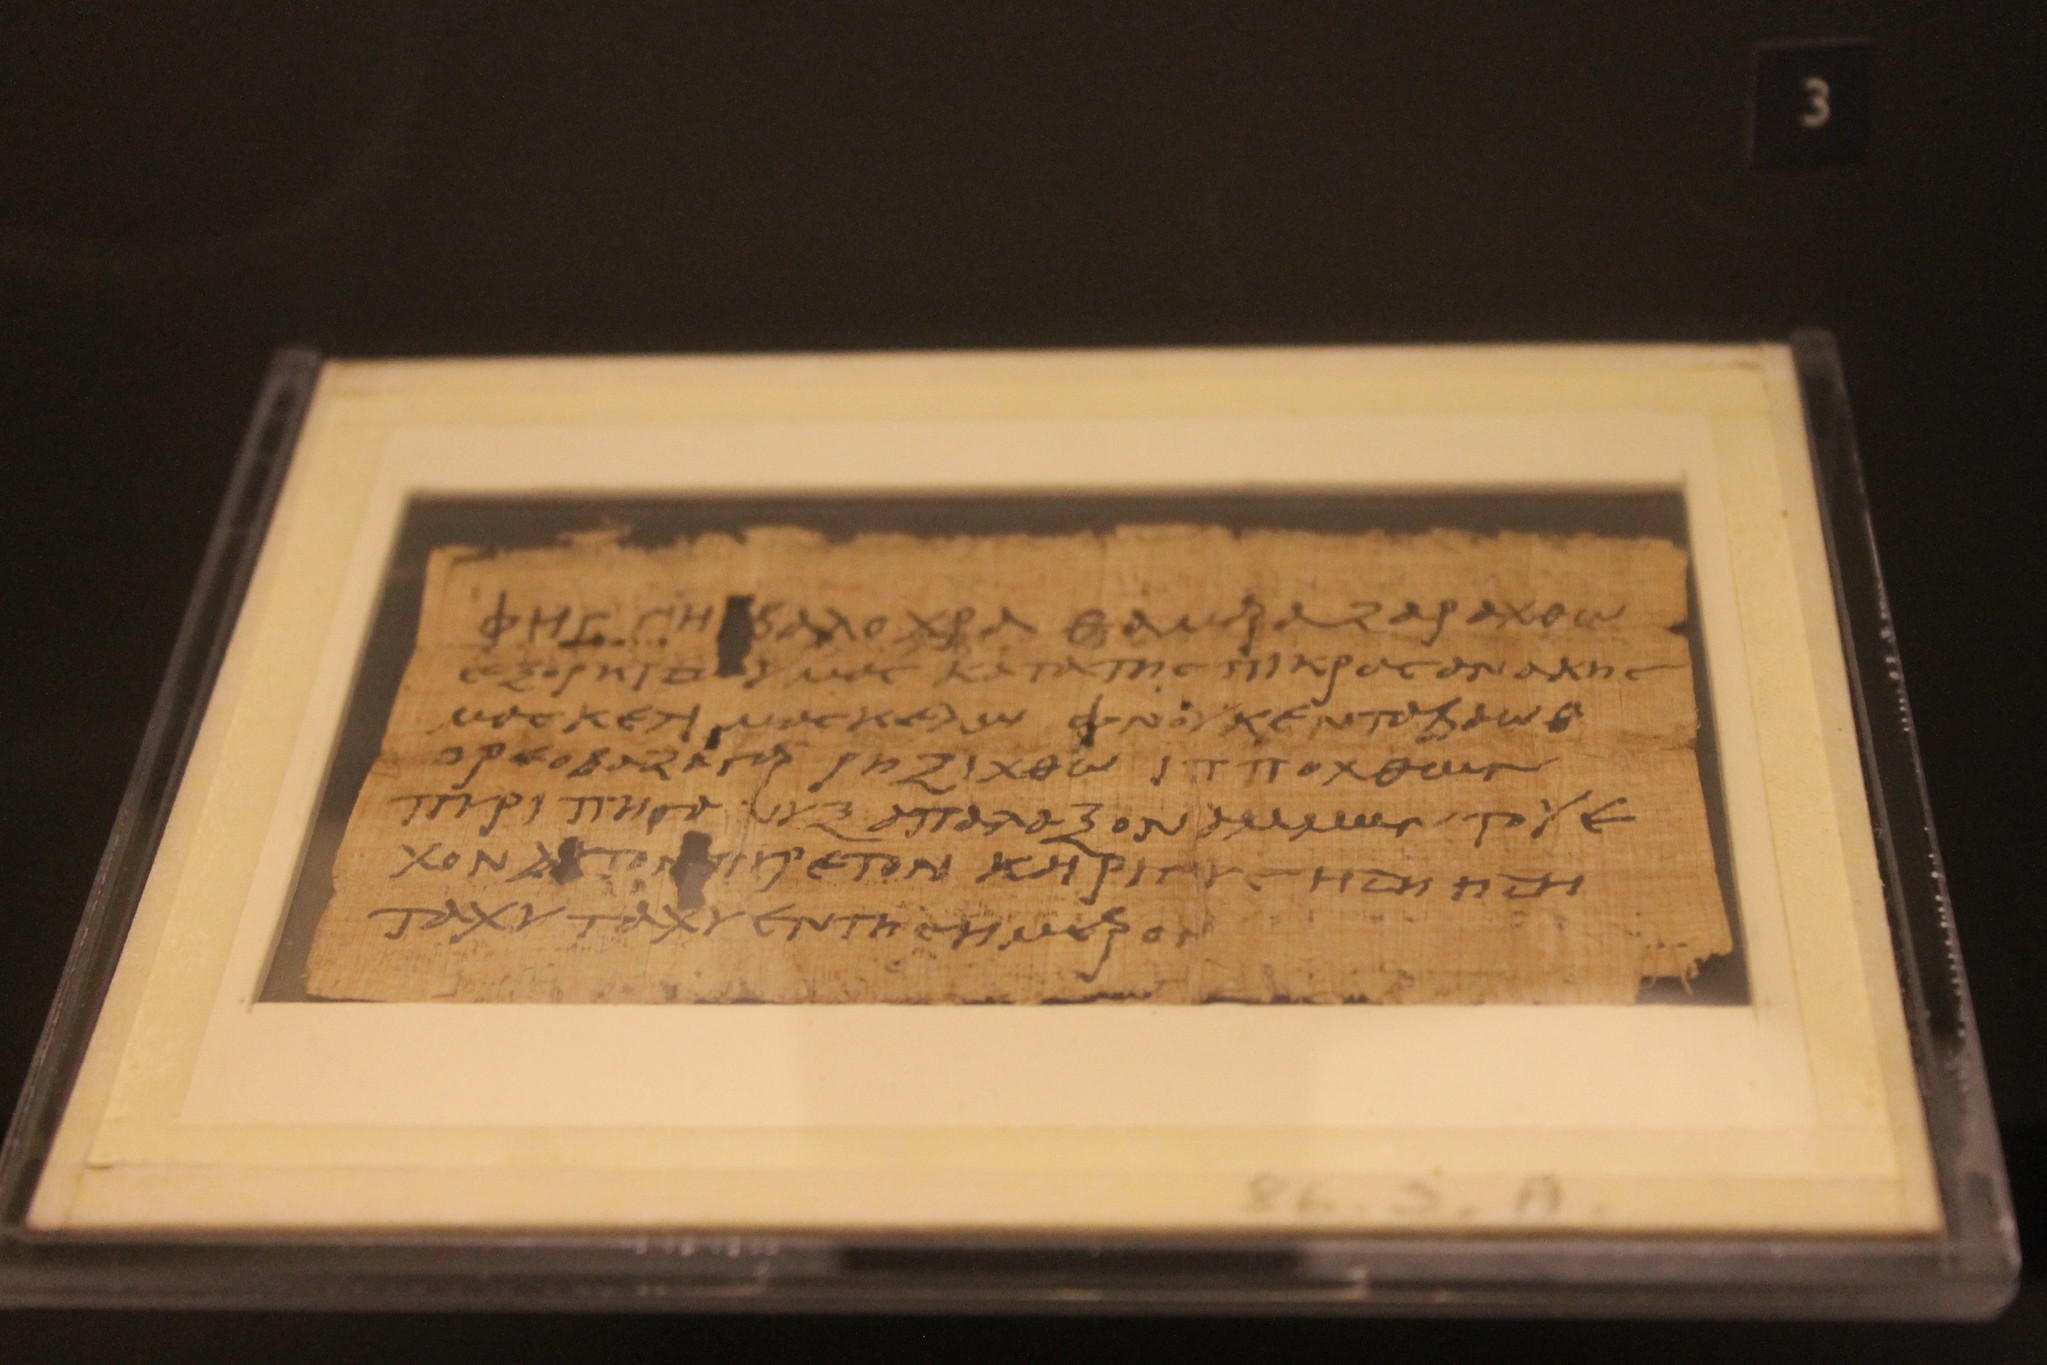 3
βαλοχρα θαμρα ζαραχθω
υμας κατα της πικρας αναγκης
μασκελλι μασκελλω φνουκενταβαωθ
ορεοβαζαγρα ρηξιχθων ιπποχθων
πυριπηγανυξ απαλαξον αμμων τον ε
χοντα τον πυρετον και ριγος ηδη ηδη
ταχυ ταχυ εν τη σημερον
86. 5. A.